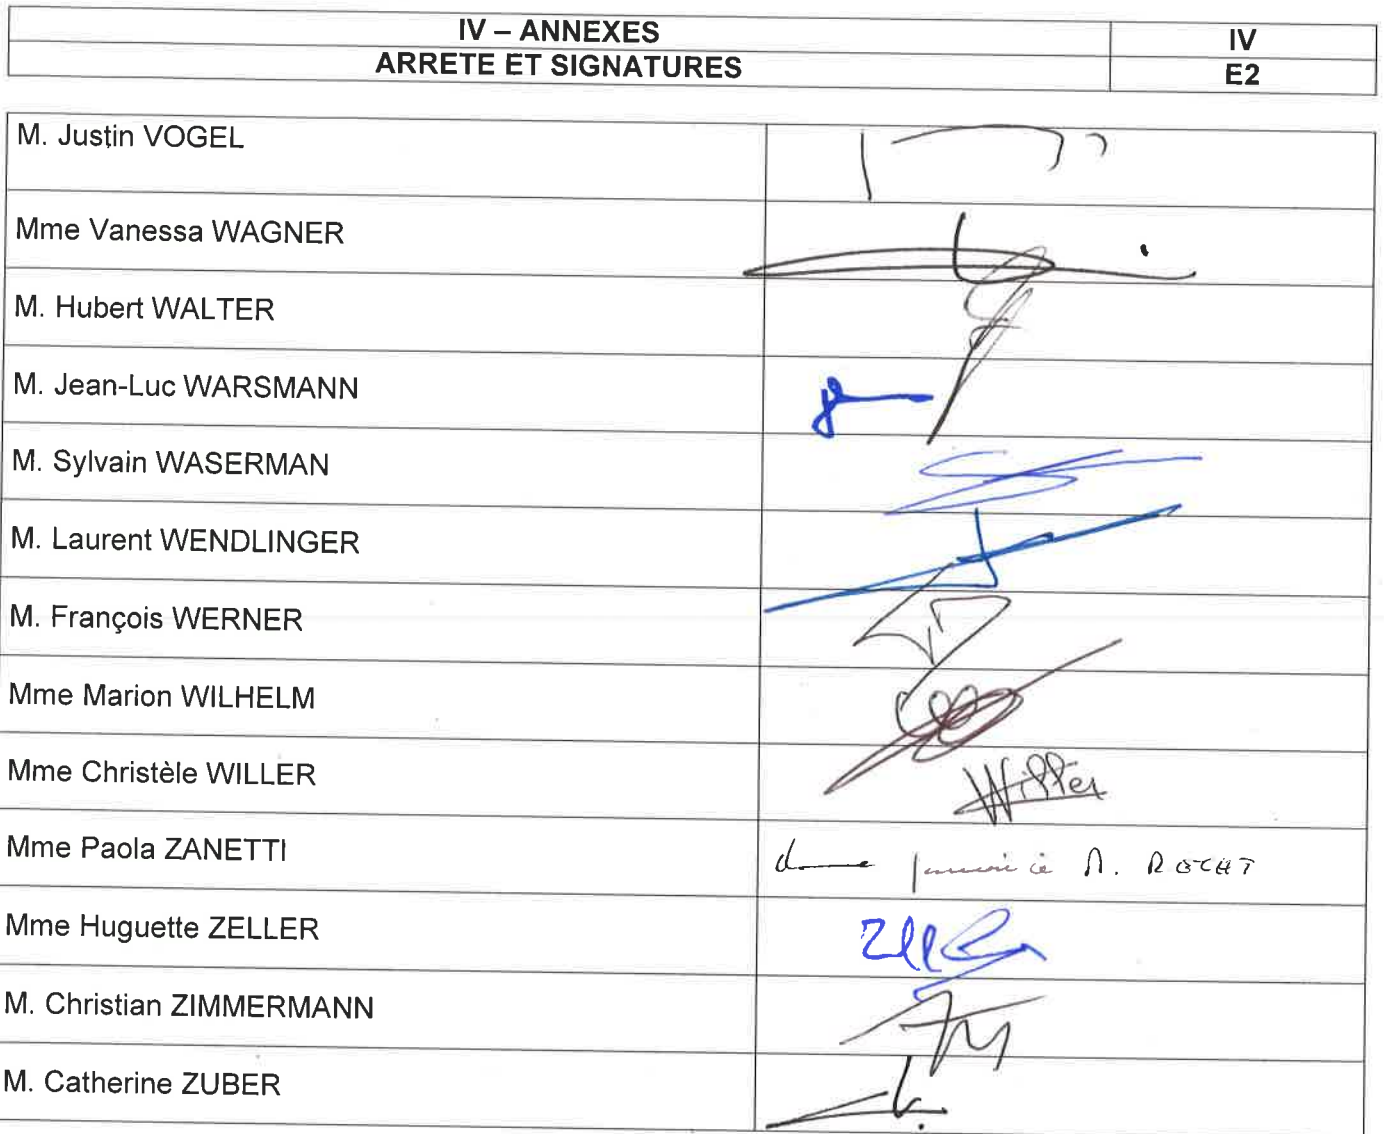 IV – ANNEXES
IV
ARRETE ET SIGNATURES
E2
M. Justin VOGEL
Mme Vanessa WAGNER
M. Hubert WALTER
M. Jean-Luc WARSMANN
M. Sylvain WASERMAN
M. Laurent WENDLINGER
M. François WERNER
Mme Marion WILHELM
Mme Christèle WILLER
Willer
Mme Paola ZANETTI
Mme Huguette ZELLER
M. Christian ZIMMERMANN
M. Catherine ZUBER